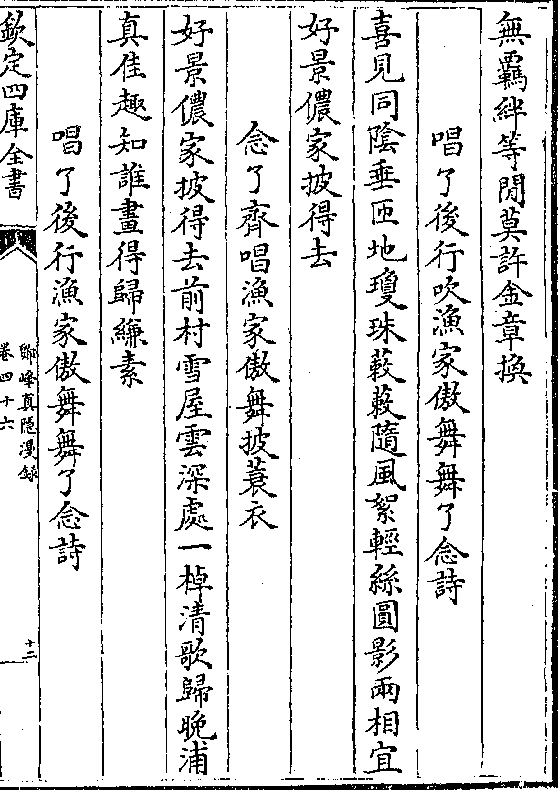 無羈絆等閒莫許金章換
唱了後行吹漁家傲舞舞了念詩
喜見同陰垂匝地瓊珠蔌蔌隨風絮輕絲圓影兩相宜
好景儂家披得去
念了齊唱漁家傲舞披蓑衣
好景儂家披得去前村雪屋雲深處一棹清歌歸晚浦
真佳趣知誰畫得歸縑素
唱了後行漁家傲舞舞了念詩
欽定四庫全書
鄮峰真隱漫錄
卷四十六
十二